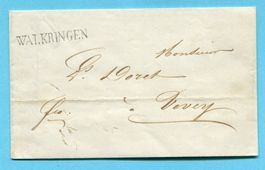 WALKRINGEN
Monsieur
Ls. Doret
à Vevey
fco.